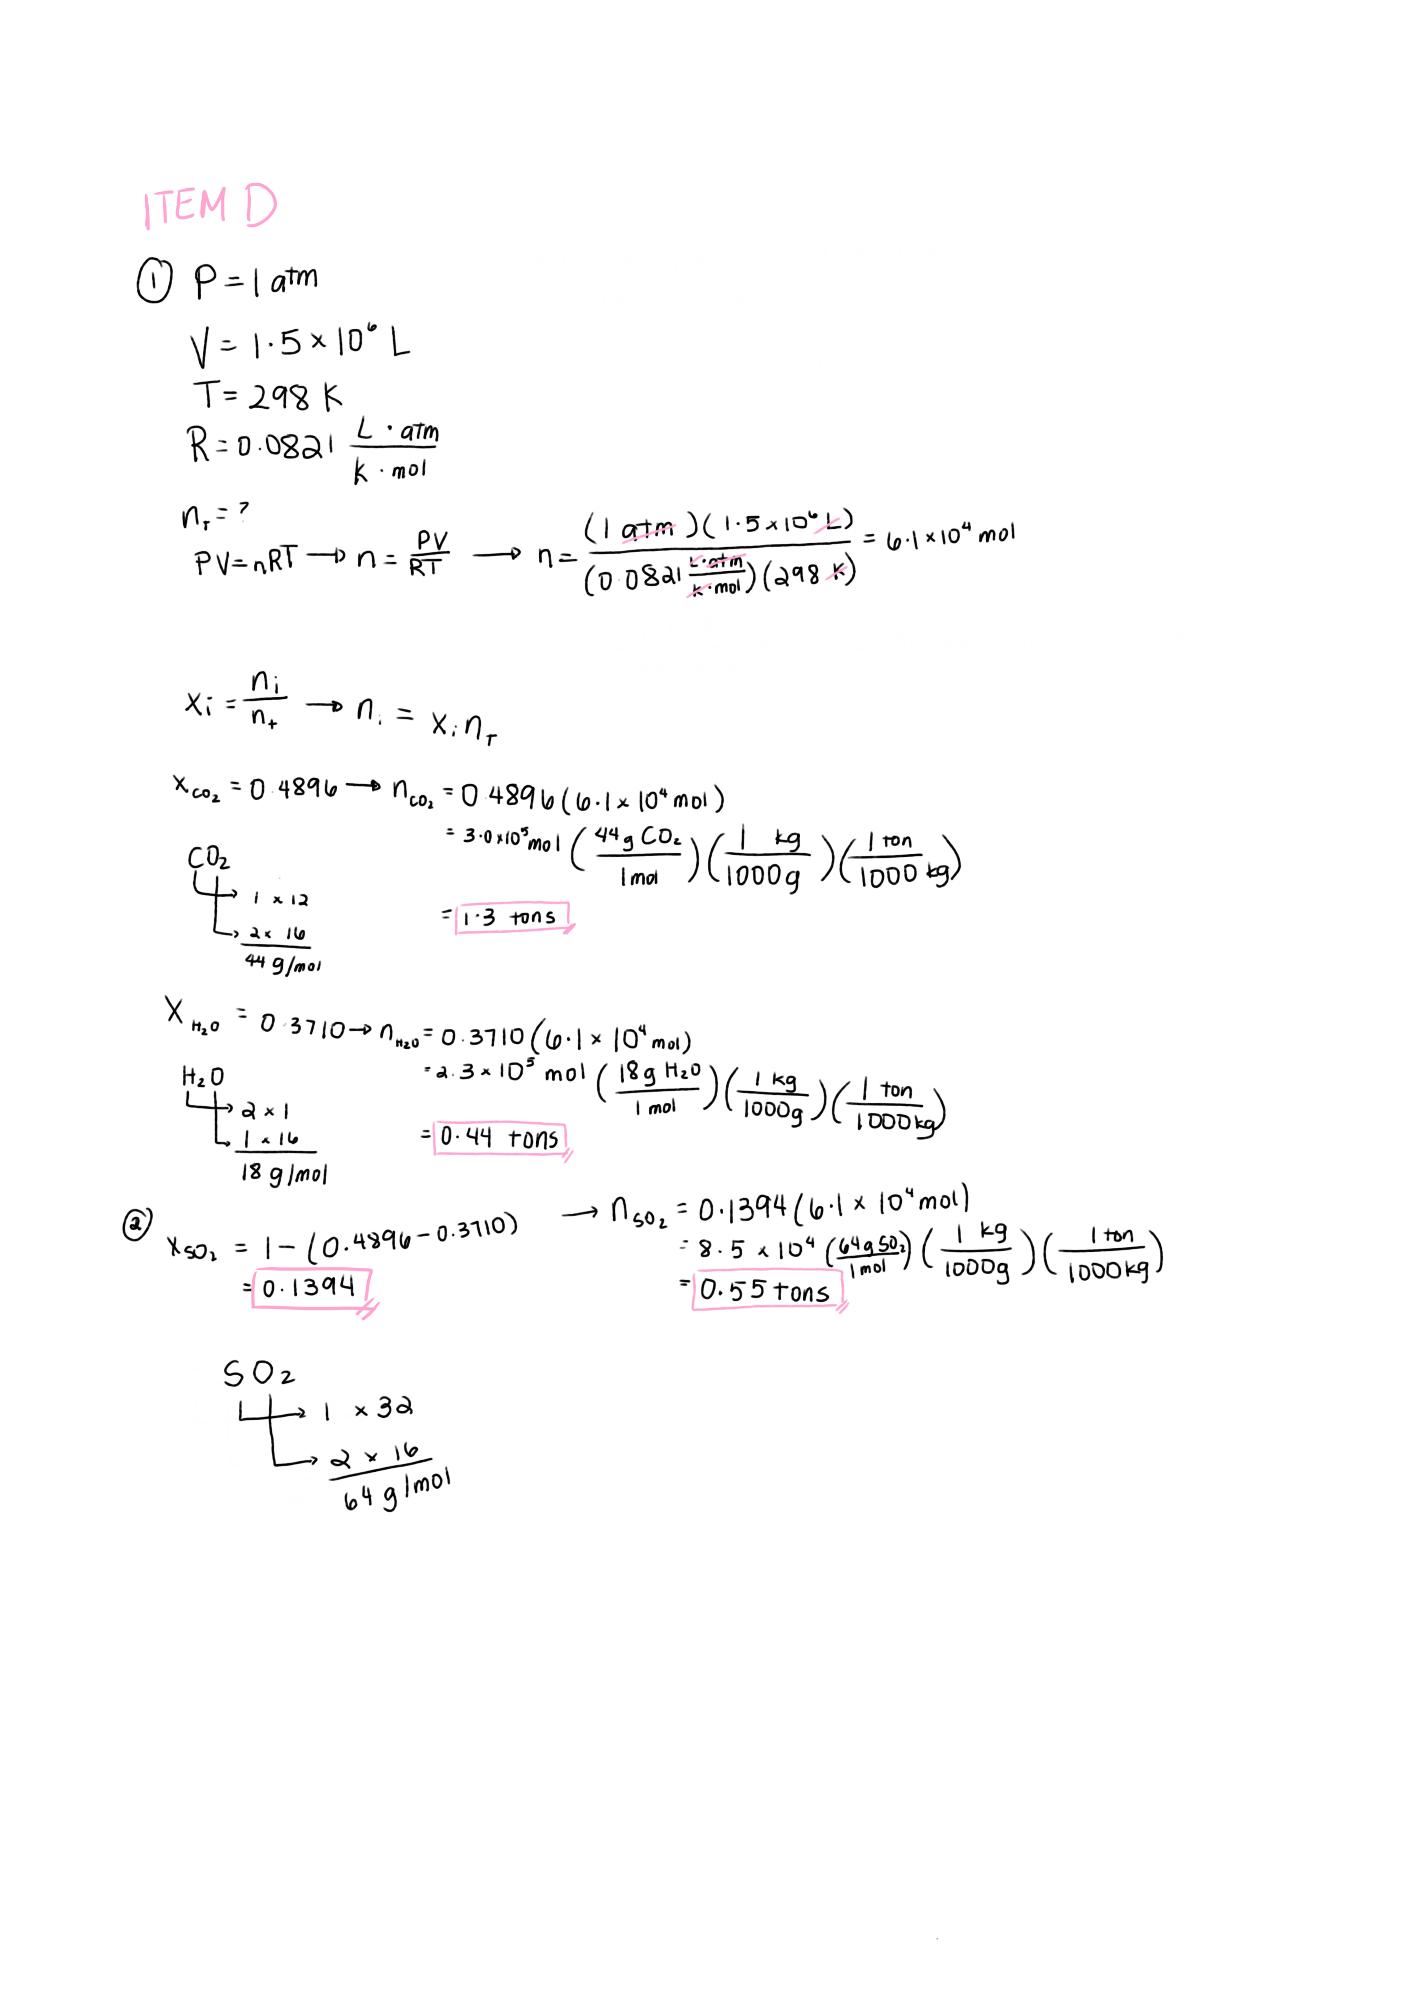 ITEM D
① P = 1 atm
V = 1.5 × 10⁶ L
T = 298 K
R = 0.0821 L · atm / K · mol
n_T = ?
PV = nRT → n = PV / RT → n = (1 atm)(1.5 × 10⁶ L) / (0.0821 L·atm / K·mol)(298 K) = 6.1 × 10⁴ mol
Xi = ni / n_t → ni = Xi n_T
X_CO₂ = 0.4896 → n_CO₂ = 0.4896 (6.1 × 10⁴ mol)
= 3.0 × 10⁵ mol (44 g CO₂ / 1 mol)(1 kg / 1000 g)(1 ton / 1000 kg)
CO₂
→ 1 × 12
= 1.3 tons
→ 2 × 16
44 g/mol
X_H₂O = 0.3710 → n_H₂O = 0.3710 (6.1 × 10⁴ mol)
= 2.3 × 10⁵ mol (18 g H₂O / 1 mol)(1 kg / 1000 g)(1 ton / 1000 kg)
H₂O
→ 2 × 1
= 0.44 tons
→ 1 × 16
18 g/mol
② X_SO₂ = 1 − (0.4896 − 0.3710) → n_SO₂ = 0.1394 (6.1 × 10⁴ mol)
= 8.5 × 10⁴ (64 g SO₂ / 1 mol)(1 kg / 1000 g)(1 ton / 1000 kg)
= 0.1394
= 0.55 tons
SO₂
→ 1 × 32
→ 2 × 16
64 g/mol